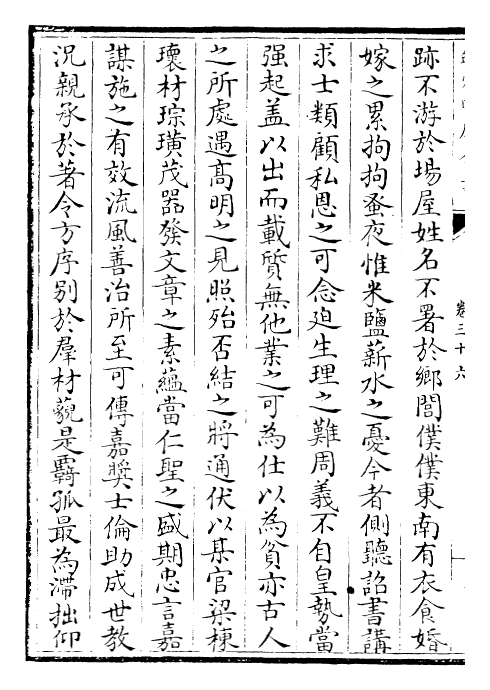 卷三十六
跡不游於場屋姓名不署於鄉閭僕僕東南有衣食婚
嫁之累拘拘蚤夜惟米鹽薪水之憂今者側聽詔書講
求士類顧私恩之可念迫生理之難周義不自皇勢當
强起盖以出而載質無他業之可為仕以為貧亦古人
之所處遇高明之見照殆否結之將通伏以某官梁棟
瓌材琮璜茂器發文章之素蘊當仁聖之盛期忠言嘉
謀施之有效流風善治所至可傳嘉奬士倫助成世教
況親承於著令方序别於羣材藐是覊孤最為滯拙仰